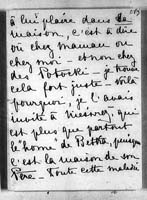 à lui plaire dans sa
maison, c'est à dire
où chez maman ou
chez moi - et non chez
des Potocki - je trouve
cela fort juste - voilà
pourquoi, je l'avais
invité à Nieswiez, qui
est plus que partout
l'home de Betka, puisque
c'est la maison de son
Père - Toute cette maladie